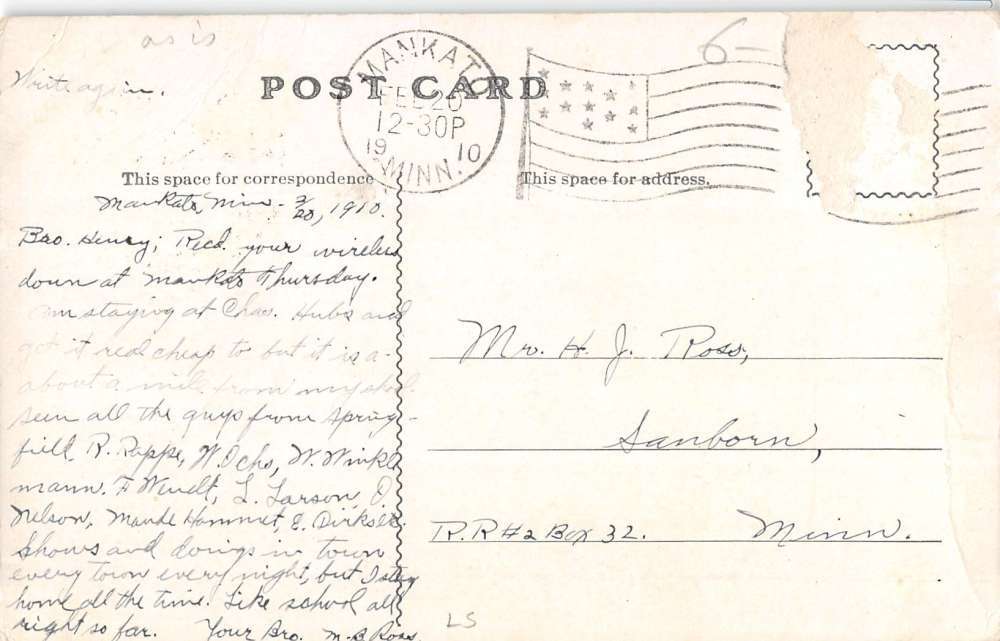 as is
6-
Write again.
POST CARD
MANKATO
FEB 20
12-30P
19 10
MINN.
This space for correspondence
This space for address.
Mankato, Minn. 2/20, 1910.
Bro. Henry; Recd. your wireless
down at Mankato Thursday.
Am staying at Chas. Hubs and
got it real cheap to but it is a-
about a mile from my school.
seen all the guys from Spring-
field, R. Rappe, W. Ochs, W. Winkl
mann. F Wendt, L. Larson, O
Nelson, Maude Hammet, E. Dirks
Shows and doings in town
every town every night, but I stay
home all the time. Like school all
right so far. Your Bro. M-B Ross.
Mr. H. J. Ross,
Sanborn,
R.R #2 Box 32. Minn.
LS